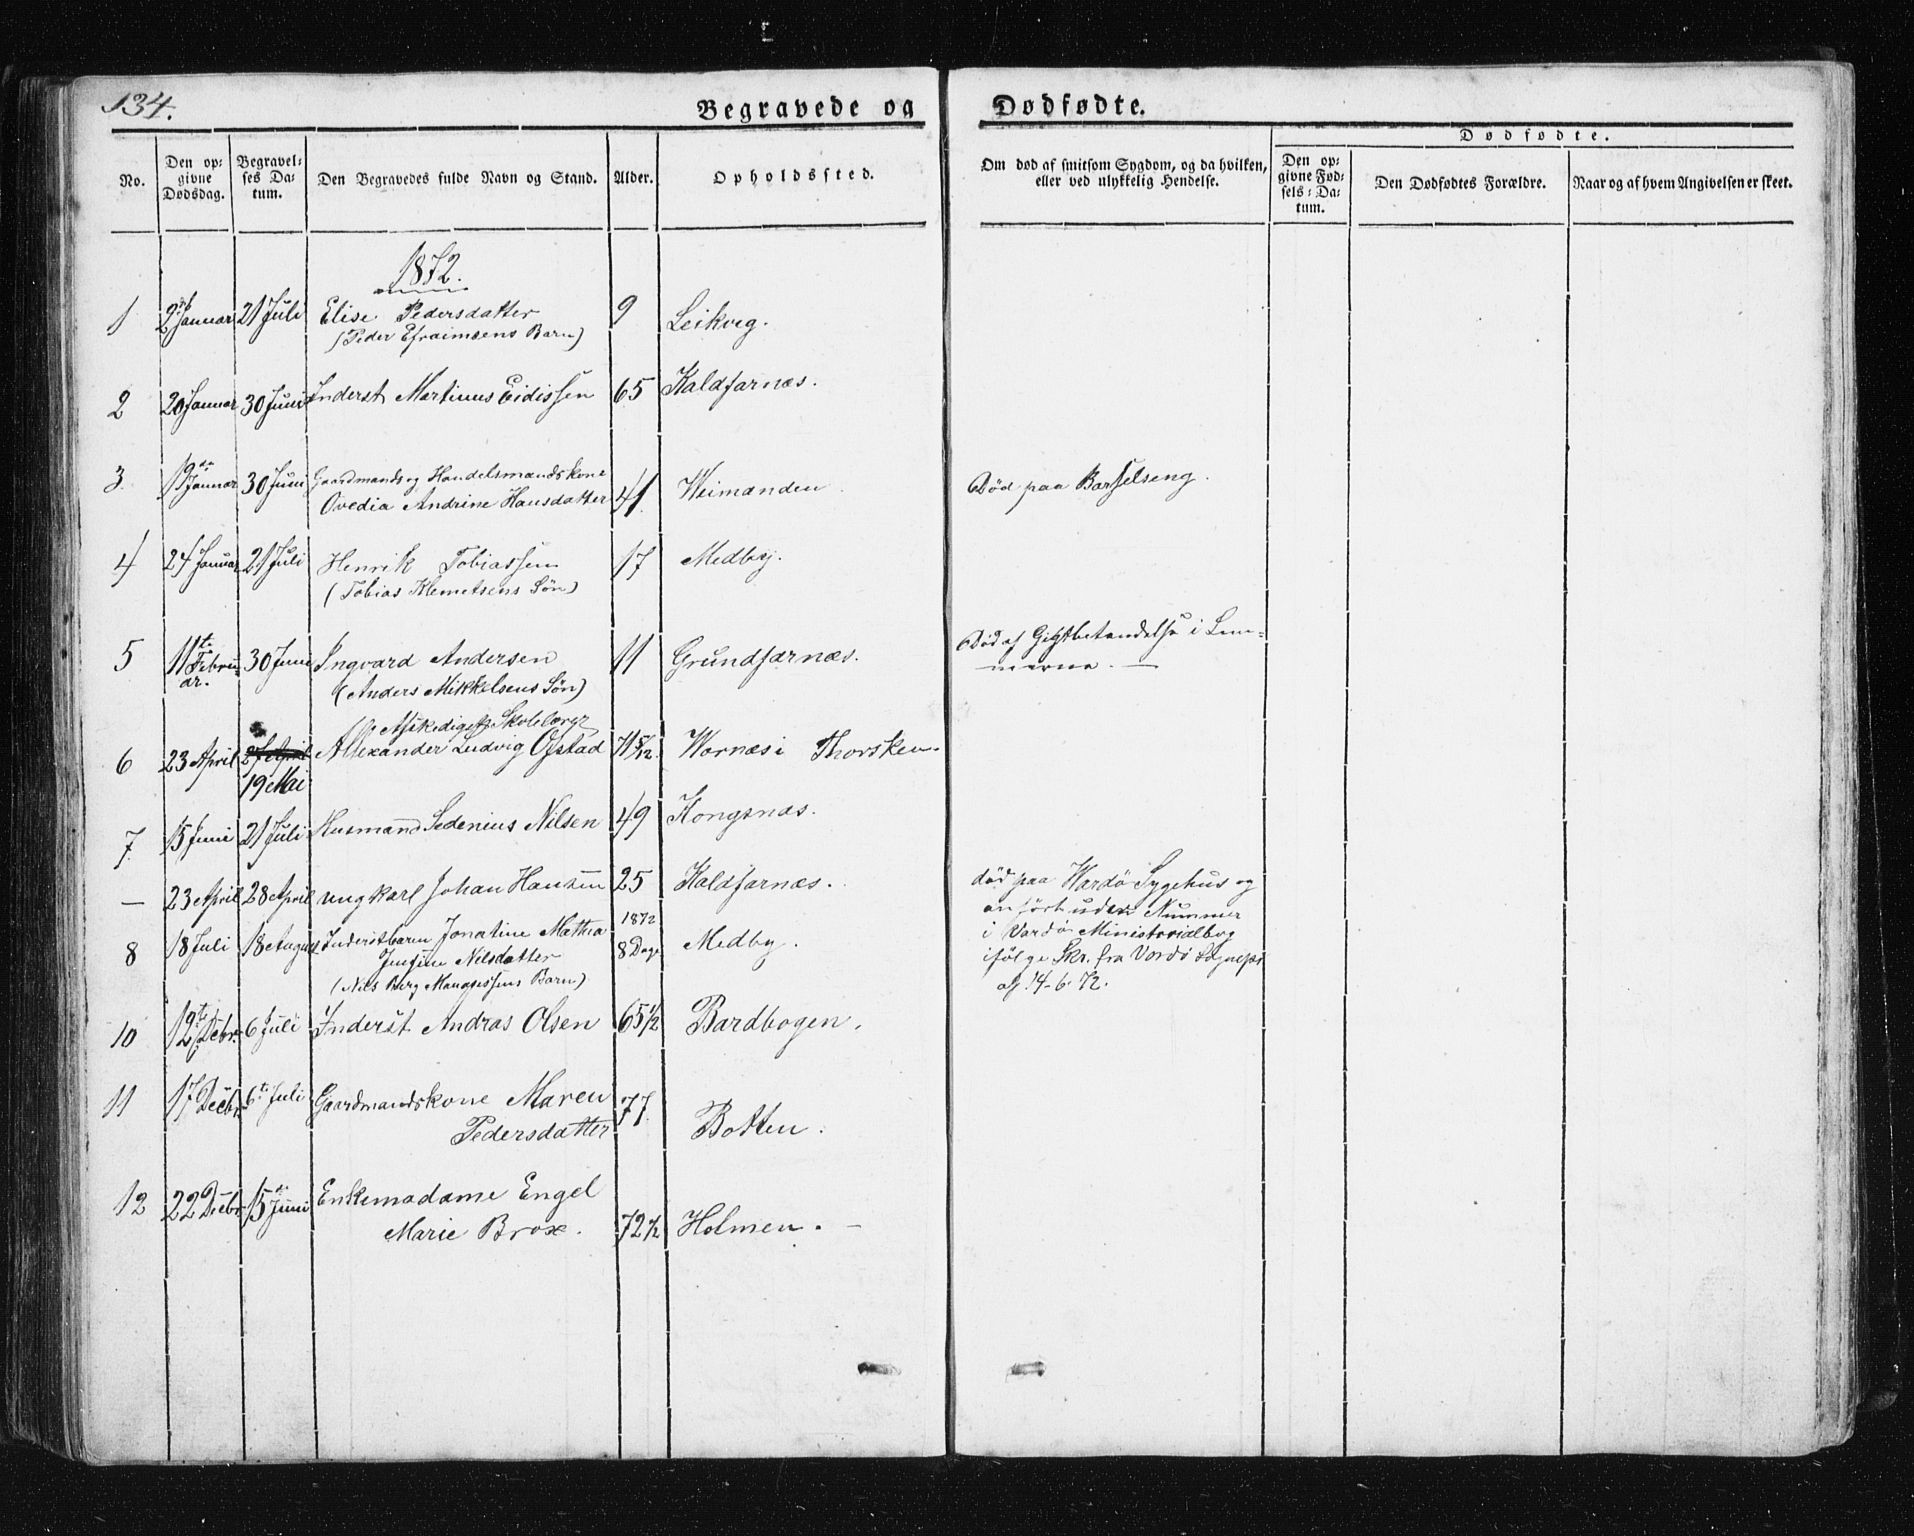 134.
Begravede og Dødfødte.
No.
Den op-
givne
Dødsdag.
Begravel-
ses Da-
tum.
Den Begravedes fulde Navn og Stand.
Alder.
Opholdssted.
Om død af smitsom Sygdom, og da hvilken,
eller ved ulykkelig Hendelse.
Dødfødte.
Den op-
givne Fød-
sels-Da-
tum.
Den Dødfødtes Forældre.
Naar og af hvem Angivelsen er skeet.
1872.
1 2 Januar 21 Juli Elise Pedersdatter 9 Leikvig.
(Peder Efraimsens Barn)
2 20 Januar 30 Juni Inderst Martinus Eidissen 65 Kaldfarnæs.
3. 19de Januar 30 Juni Gaardmands og Handelsmands kone
Ovedia Andrine Hansdatter 41 Weimanden. Død paa Barselseng.
4 24 Januar 21 Juli Henrik Tobiassen 17 Medby.
(Tobias Klemetsens Søn)
5 11te Febru-
ar. 30 Juni Ingvard Andersen 11 Grundfarnæs. Død af Gigtbetændelse i Lem-
merne. —
(Anders Mikkelsens Søn)
Afskediget Skolelærer
6 23 April 27 April Allexander Ludvig Ofstad 71 5/12 Wornæs i Thorsken.
19 Mai
7. 15 Juni 21 Juli Husmand Sedenius Nilsen 49 Kongsnæs.
— 23 April 28 April ungkarl Johan Hansen 25 Kaldfarnæs. død paa Wardø Sygehus og
anført uden Nummer
i Vardø Ministerialbog
ifølge Skr. fra Vardø Sognepr
af 14-6-72.
1872
8 18 Juli 18 August Inderstbarn Jonatine Mathea 8 Dage Medby.
Jensine Nilsdatter
(Nils Berg Mangsessens Barn)
10 12te Decbr. 6 Juli Inderst Andras Olsen 65 1/2 Bardbogen.
11 17 Decbr. 6te Juli Gaardmandskone Maren 77. Botten.
Pedersdatter
12 22 Decbr 15de Juni Enkemadame Engel
Marie Brox. 72 1/2 Holmen. —